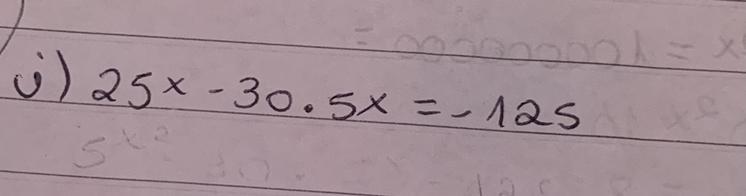 j) 25ˣ - 30 . 5x = - 125